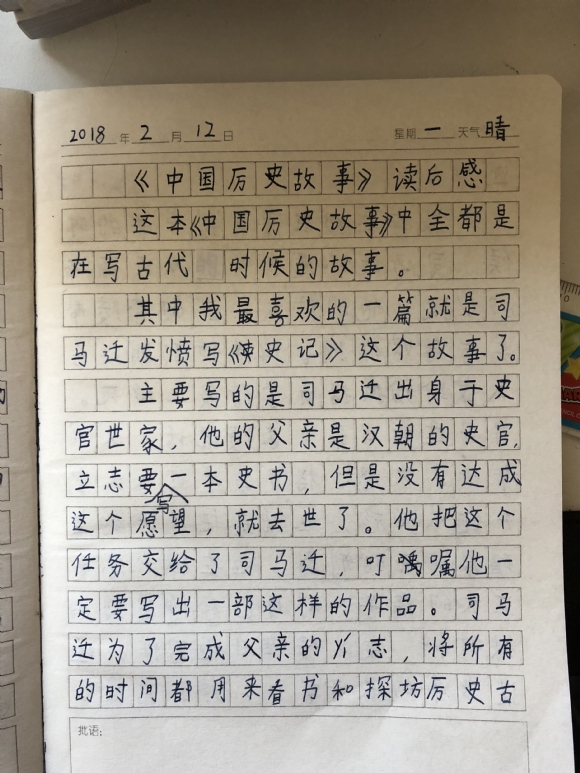 2018年2月12日 星期一 天气晴
《中国历史故事》读后感
这本《中国历史故事》中全都是
在写古代 时候的故事。
其中我最喜欢的一篇就是司
马迁发愤写《史记》这个故事了。
主要写的是司马迁出身于史
官世家,他的父亲是汉朝的史官,
立志要写一本史书,但是没有达成
这个愿望,就去世了。他把这个
任务交给了司马迁,叮嘱他一
定要写出一部这样的作品。司马
迁为了完成父亲的志,将所有
的时间都用来看书和探坊历史古
批语: